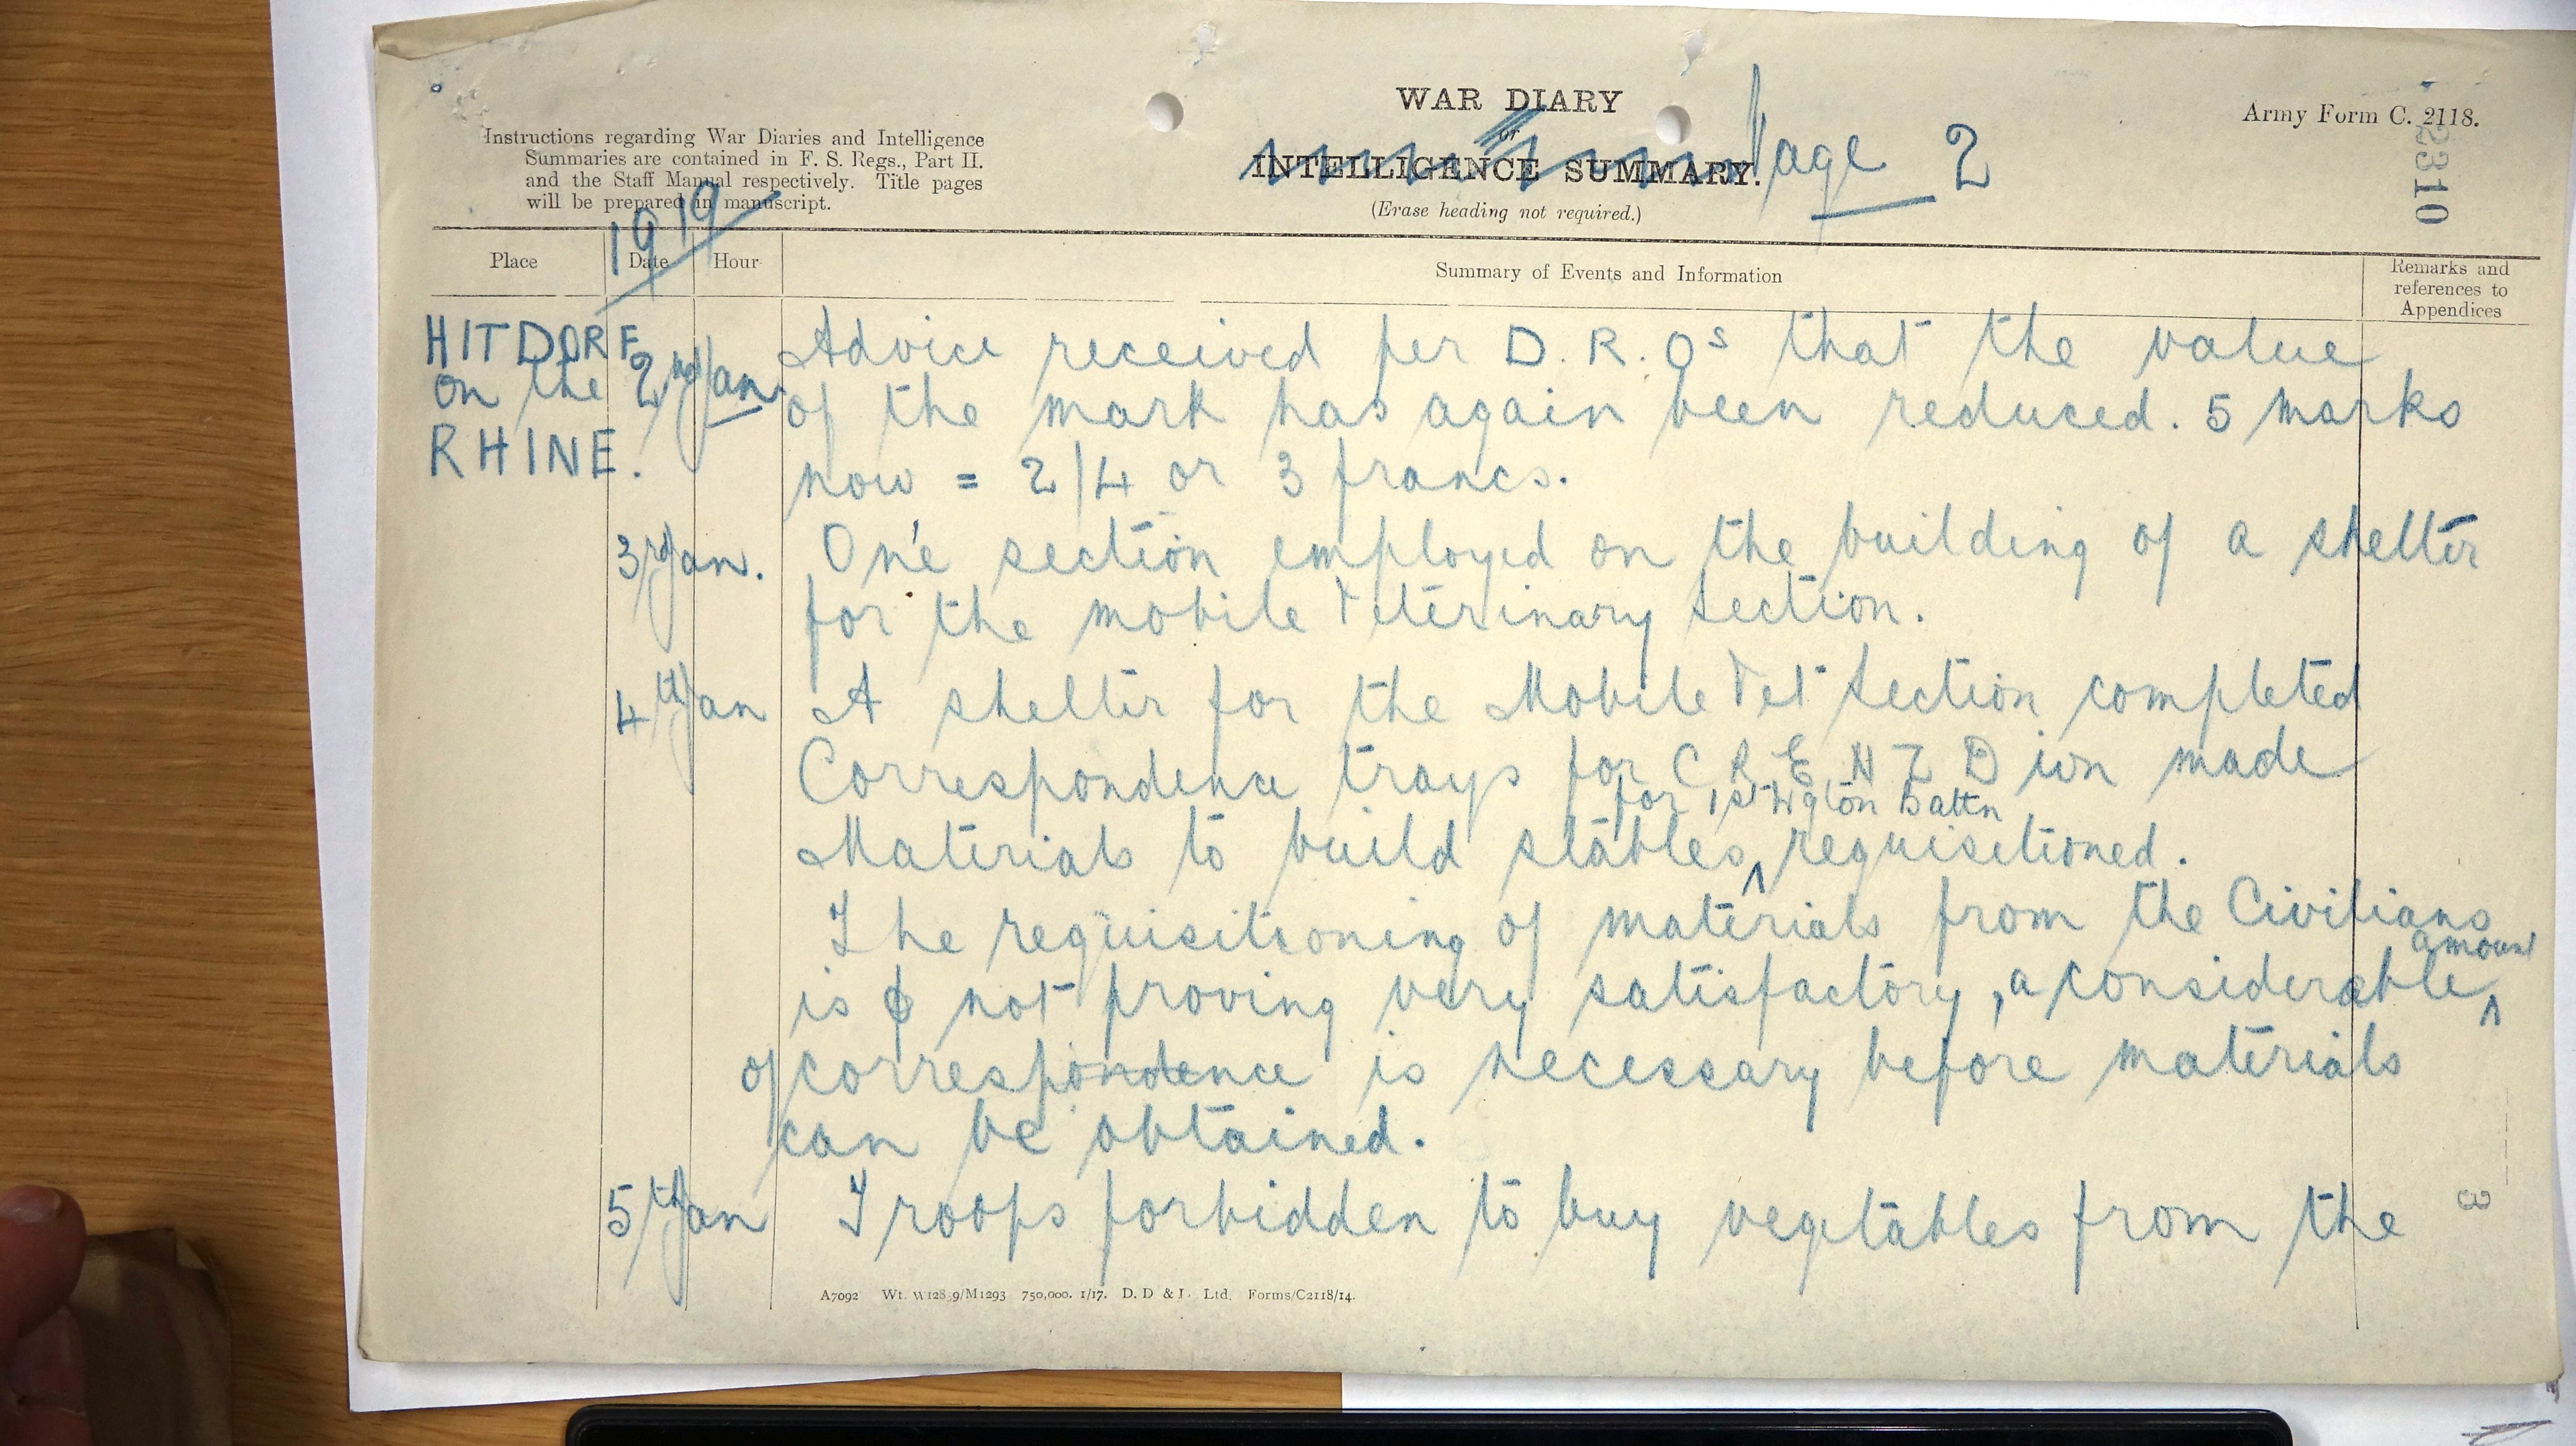 WAR DIARY
or
INTELLIGENCE SUMMARY.
(Erase heading not required.)
Page 2
Army Form C. 2118.
2310
Instructions regarding War Diaries and Intelligence
Summaries are contained in F. S. Regs., Part II.
and the Staff Manual respectively. Title pages
will be prepared in manuscript.
1919
Place Date Hour Summary of Events and Information Remarks and
references to
Appendices
HITDORF
on the
RHINE.
2nd Jan. Advice received per D.R.Os that the value
of the mark has again been reduced. 5 marks
now = 2/4 or 3 francs.
3rd Jan. One section employed on the building of a shelter
for the mobile Veterinary Section.
4th Jan A shelter for the Mobile Vet Section completed
Correspondence trays for C R E N Z Divn made
for 1st Wgton Battn
Materials to build stables requisitioned.
The requisitioning of materials from the Civilians
is not proving very satisfactory, a considerable amount
of correspondence is necessary before materials
can be obtained.
5th Jan Troops forbidden to buy vegetables from the
3
A7092 Wt. W128.9/M1293 750,000. 1/17. D. D & L. Ltd. Forms/C2118/14.